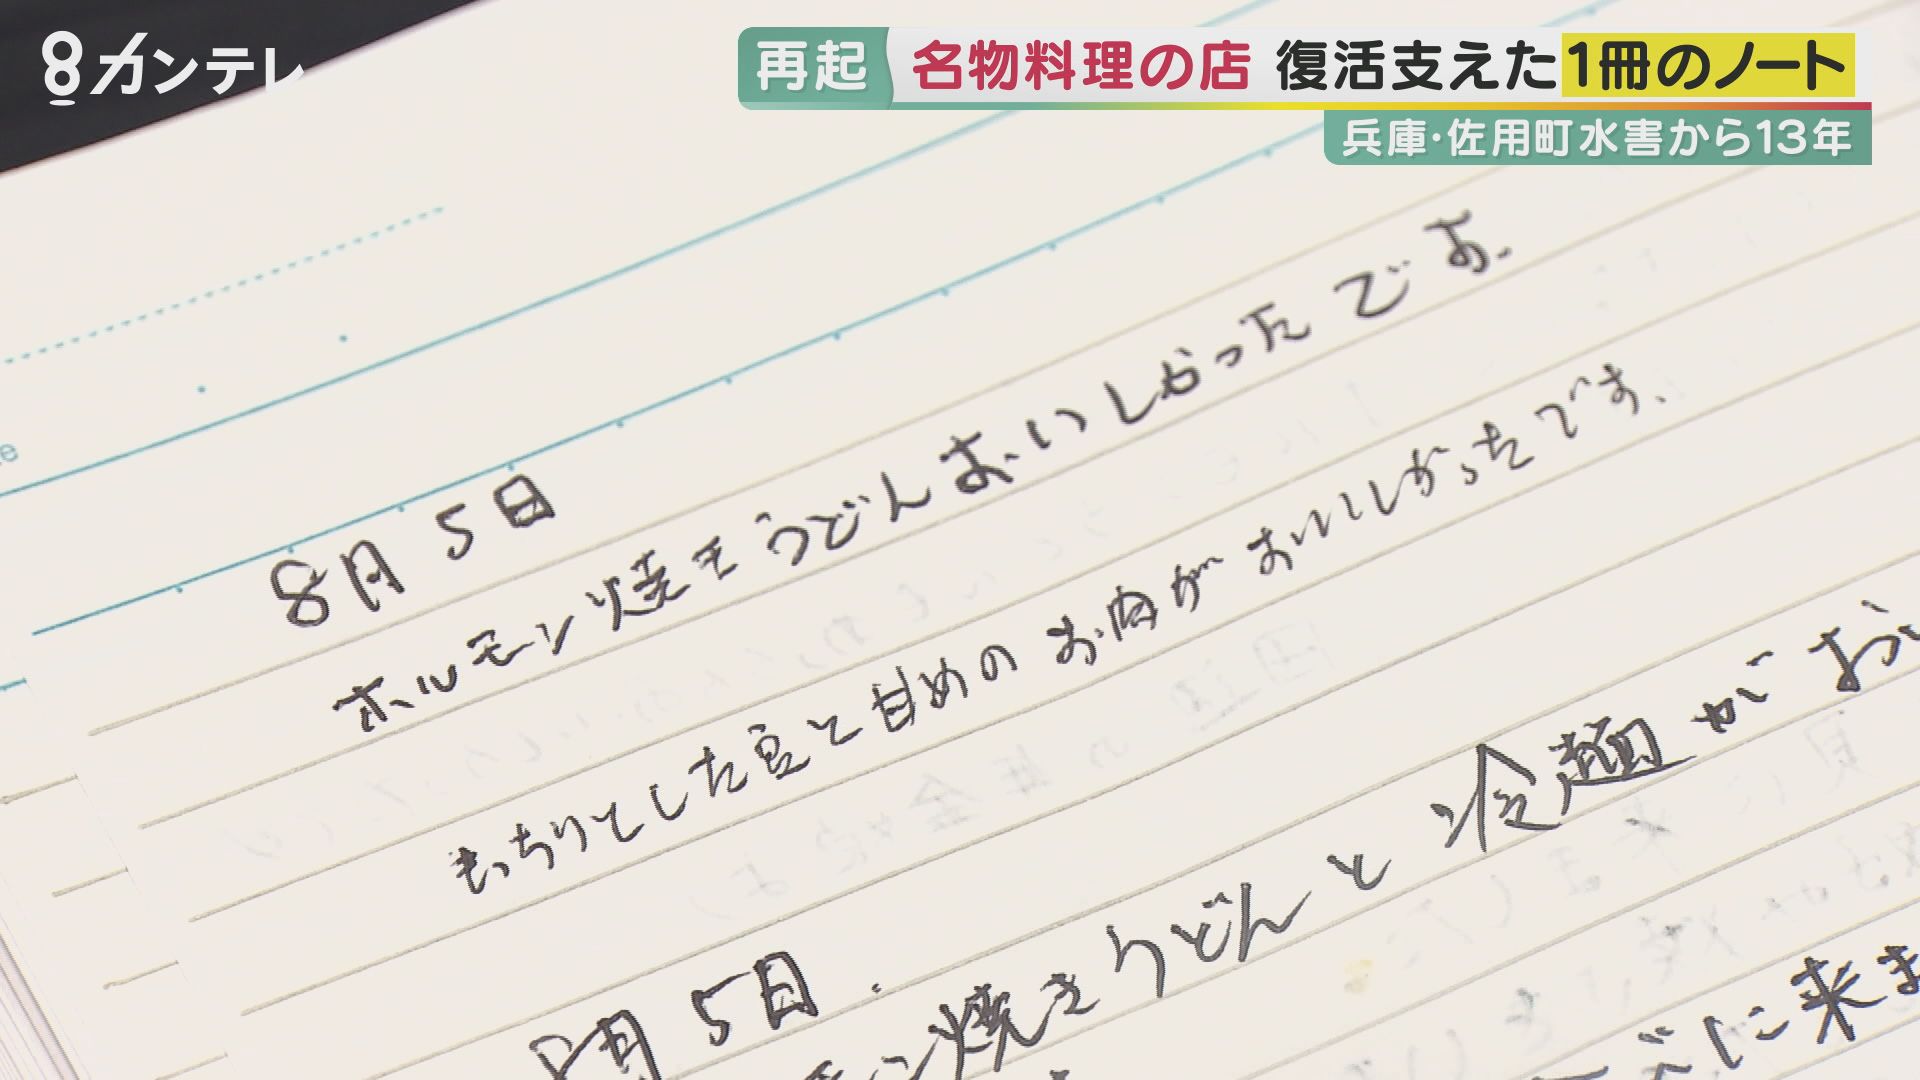 8カンテレ
再起 名物料理の店 復活支えた1冊のノート
兵庫・佐用町水害から13年
8月5日
ホルモン焼きうどんおいしかったです。
もっちりとした豆と甘めのお肉がおいしかったです。
8月5日.
ン焼きうどんと冷麺がお
に来ま